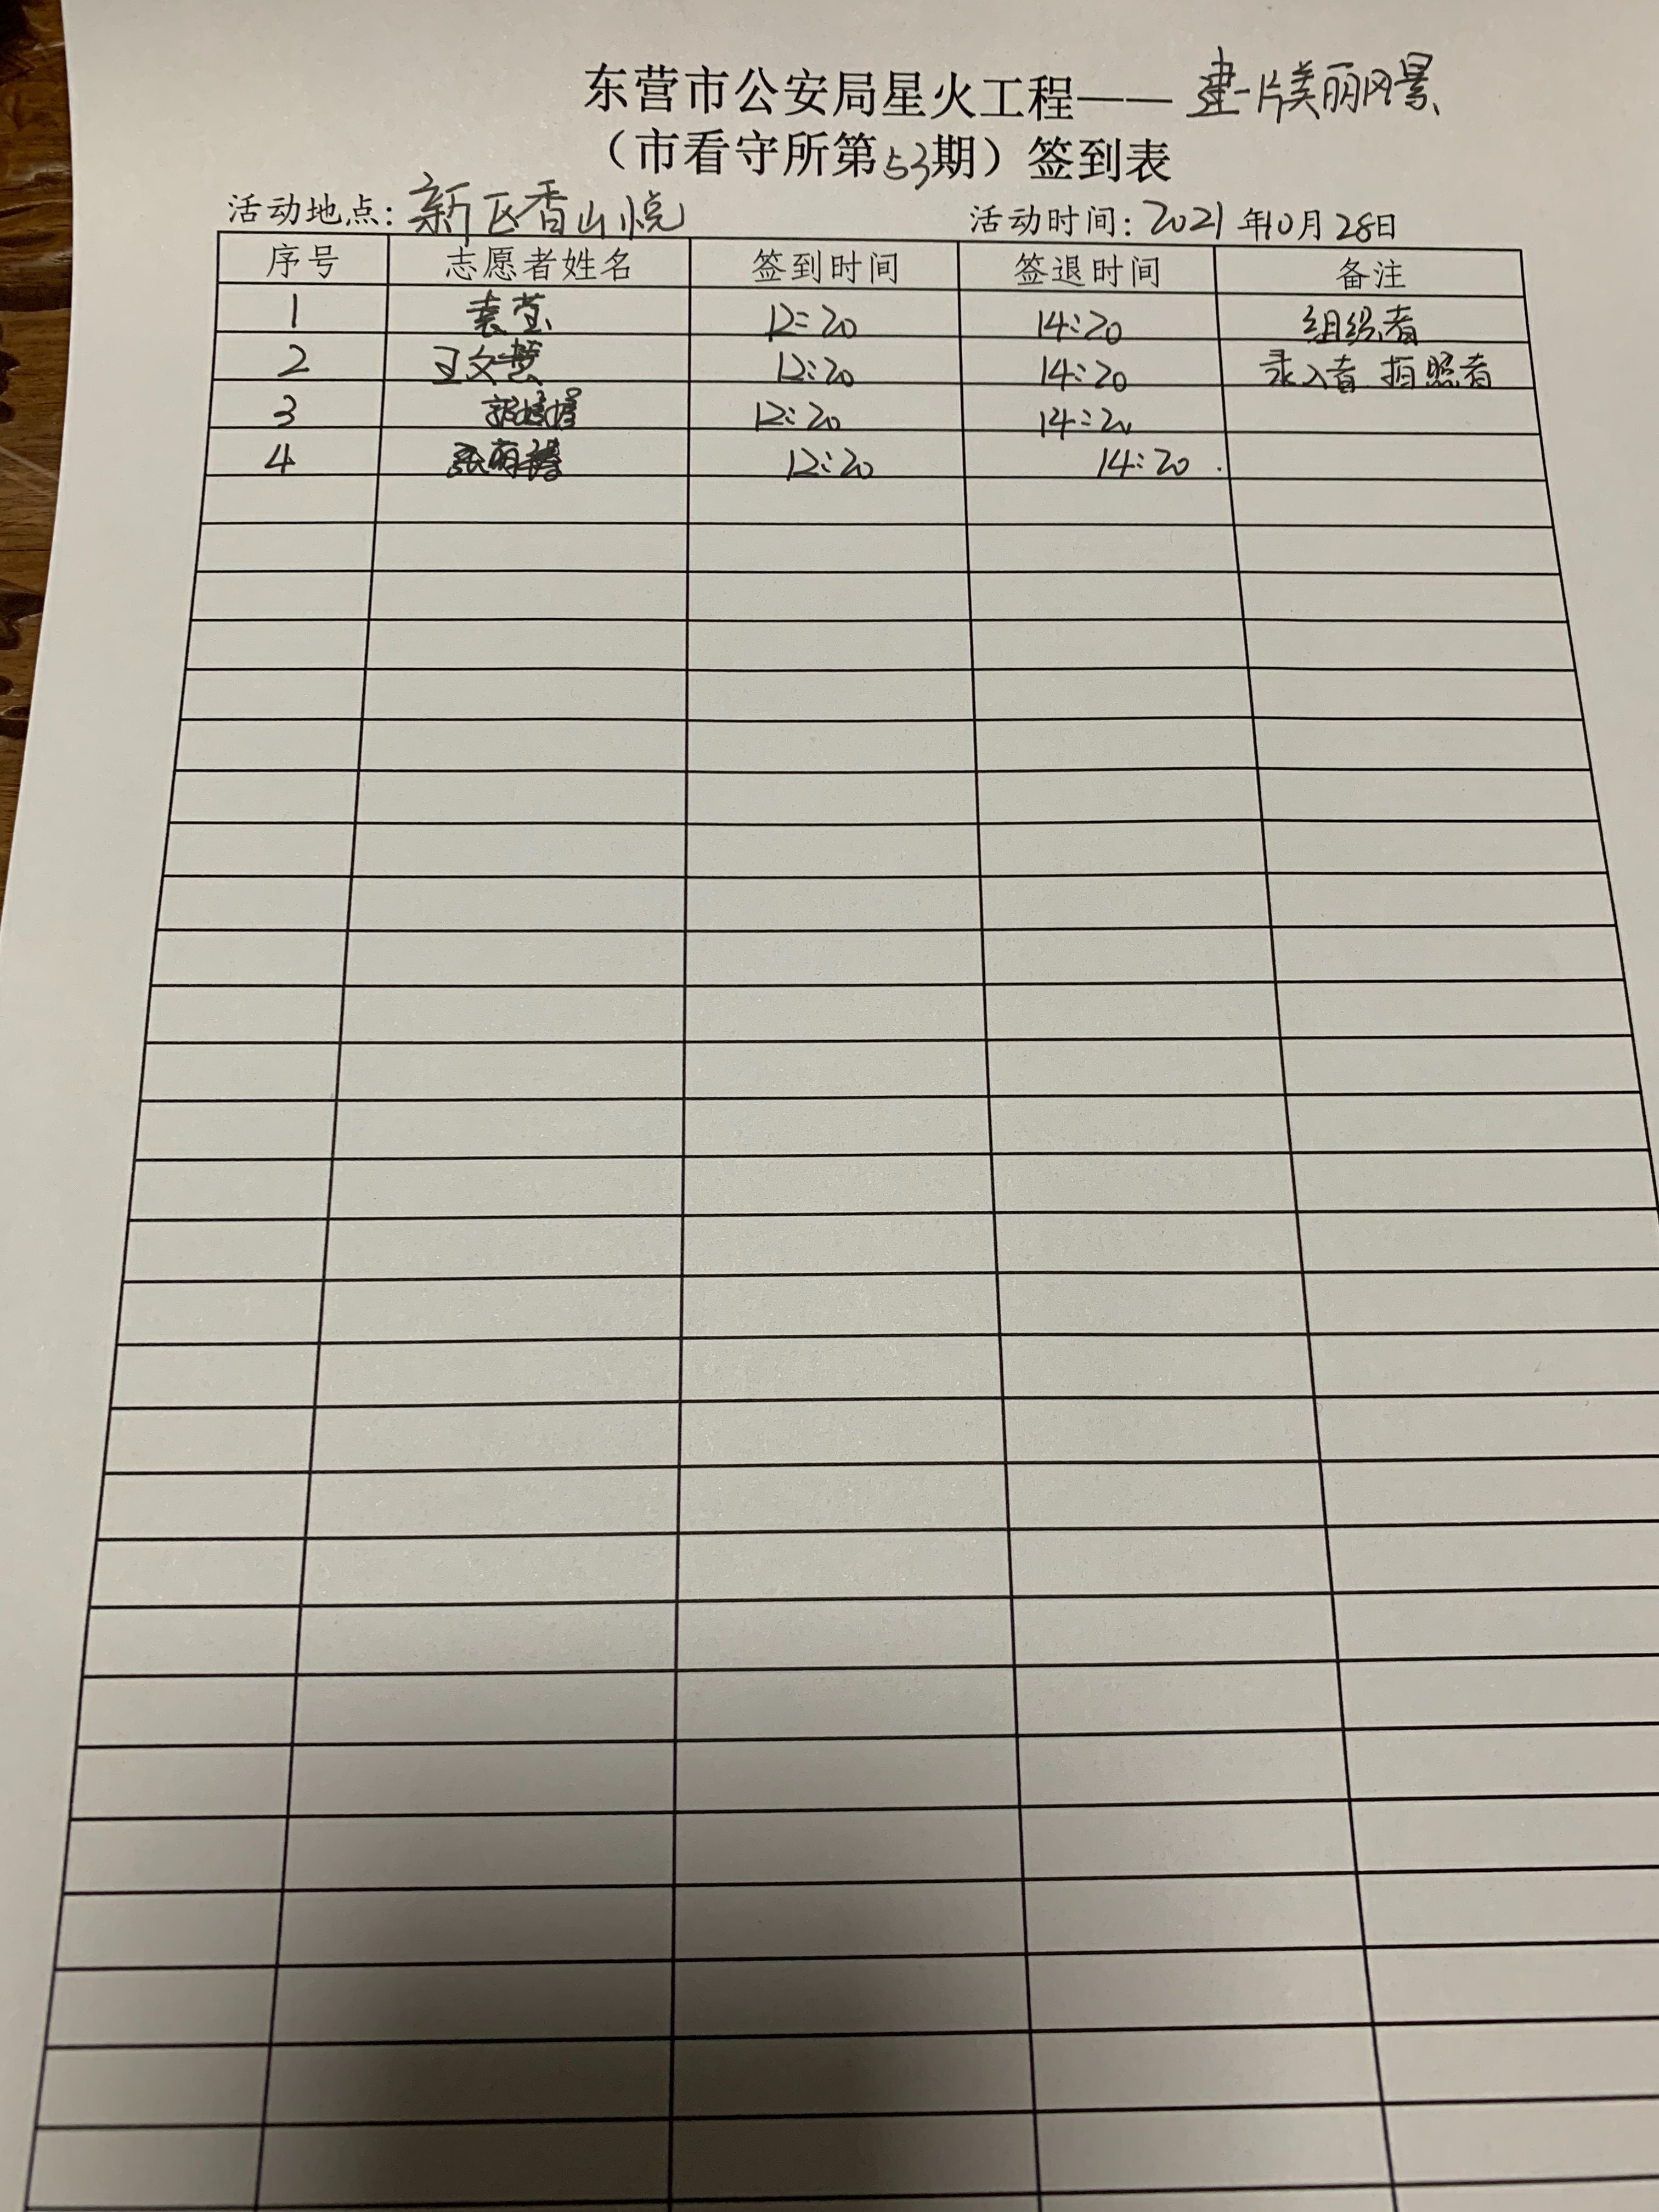 东营市公安局星火工程——建一片美丽风景
（市看守所第53期）签到表
活动地点：新区香山悦 活动时间：2021年10月28日
序号 志愿者姓名 签到时间 签退时间 备注
1 袁莹 12:20 14:20 组织者
2 王文慧 12:20 14:20 录入者 拍照者
3 12:20 14:20
4 12:20 14:20